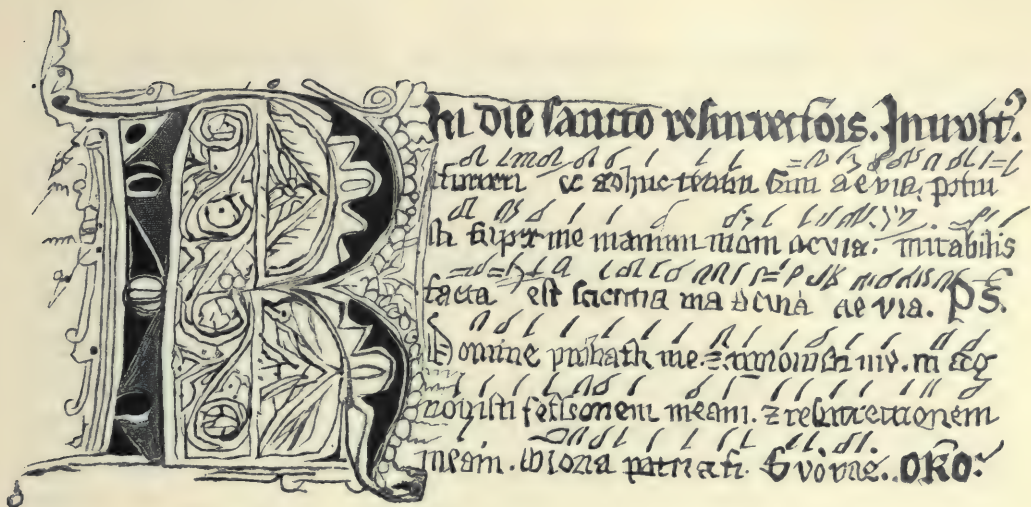 R In die sancto resurrectois.
et adhuc tecum sum aevia. posui
sti super me manum tuam aevia. mirabilis
facta est sciencia tua aevia. Ps.
Domine probasti me. cognovisti me. tu cog
novisti sessionem meam. resurrectionem
meam. Gloria patri Evovae.